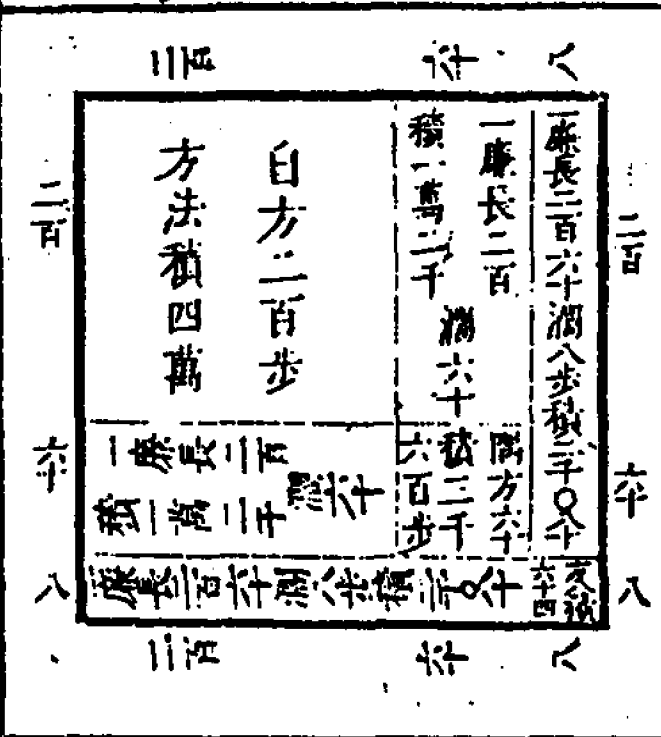 八
六十
二百
二百
六十
八
一廉長二百六十濶八步積二千〇八十
一廉長二百
濶六十
積一萬二千
自方二百步
方法積四萬
隅方六十
積三千
六百步
一廉長二百
濶六十
積一萬二千
廉長二百六十濶八步積二千〇八十
六十四
二百
六十
八
八
六十
二百